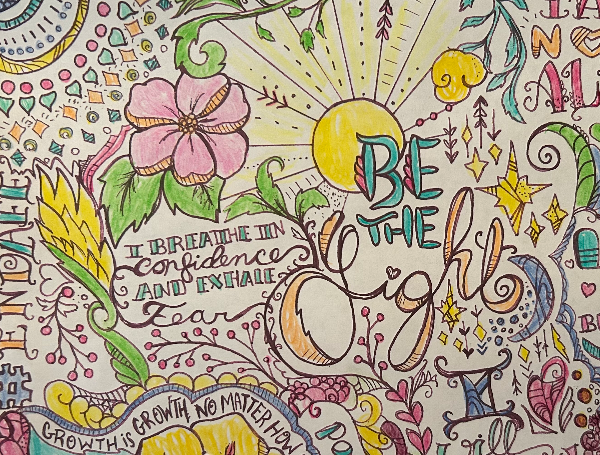 BE
THE
Light
I BREATHE IN
Confidence
AND EXHALE
Fear
GROWTH IS GROWTH, NO MATTER HOW
NO
I
will